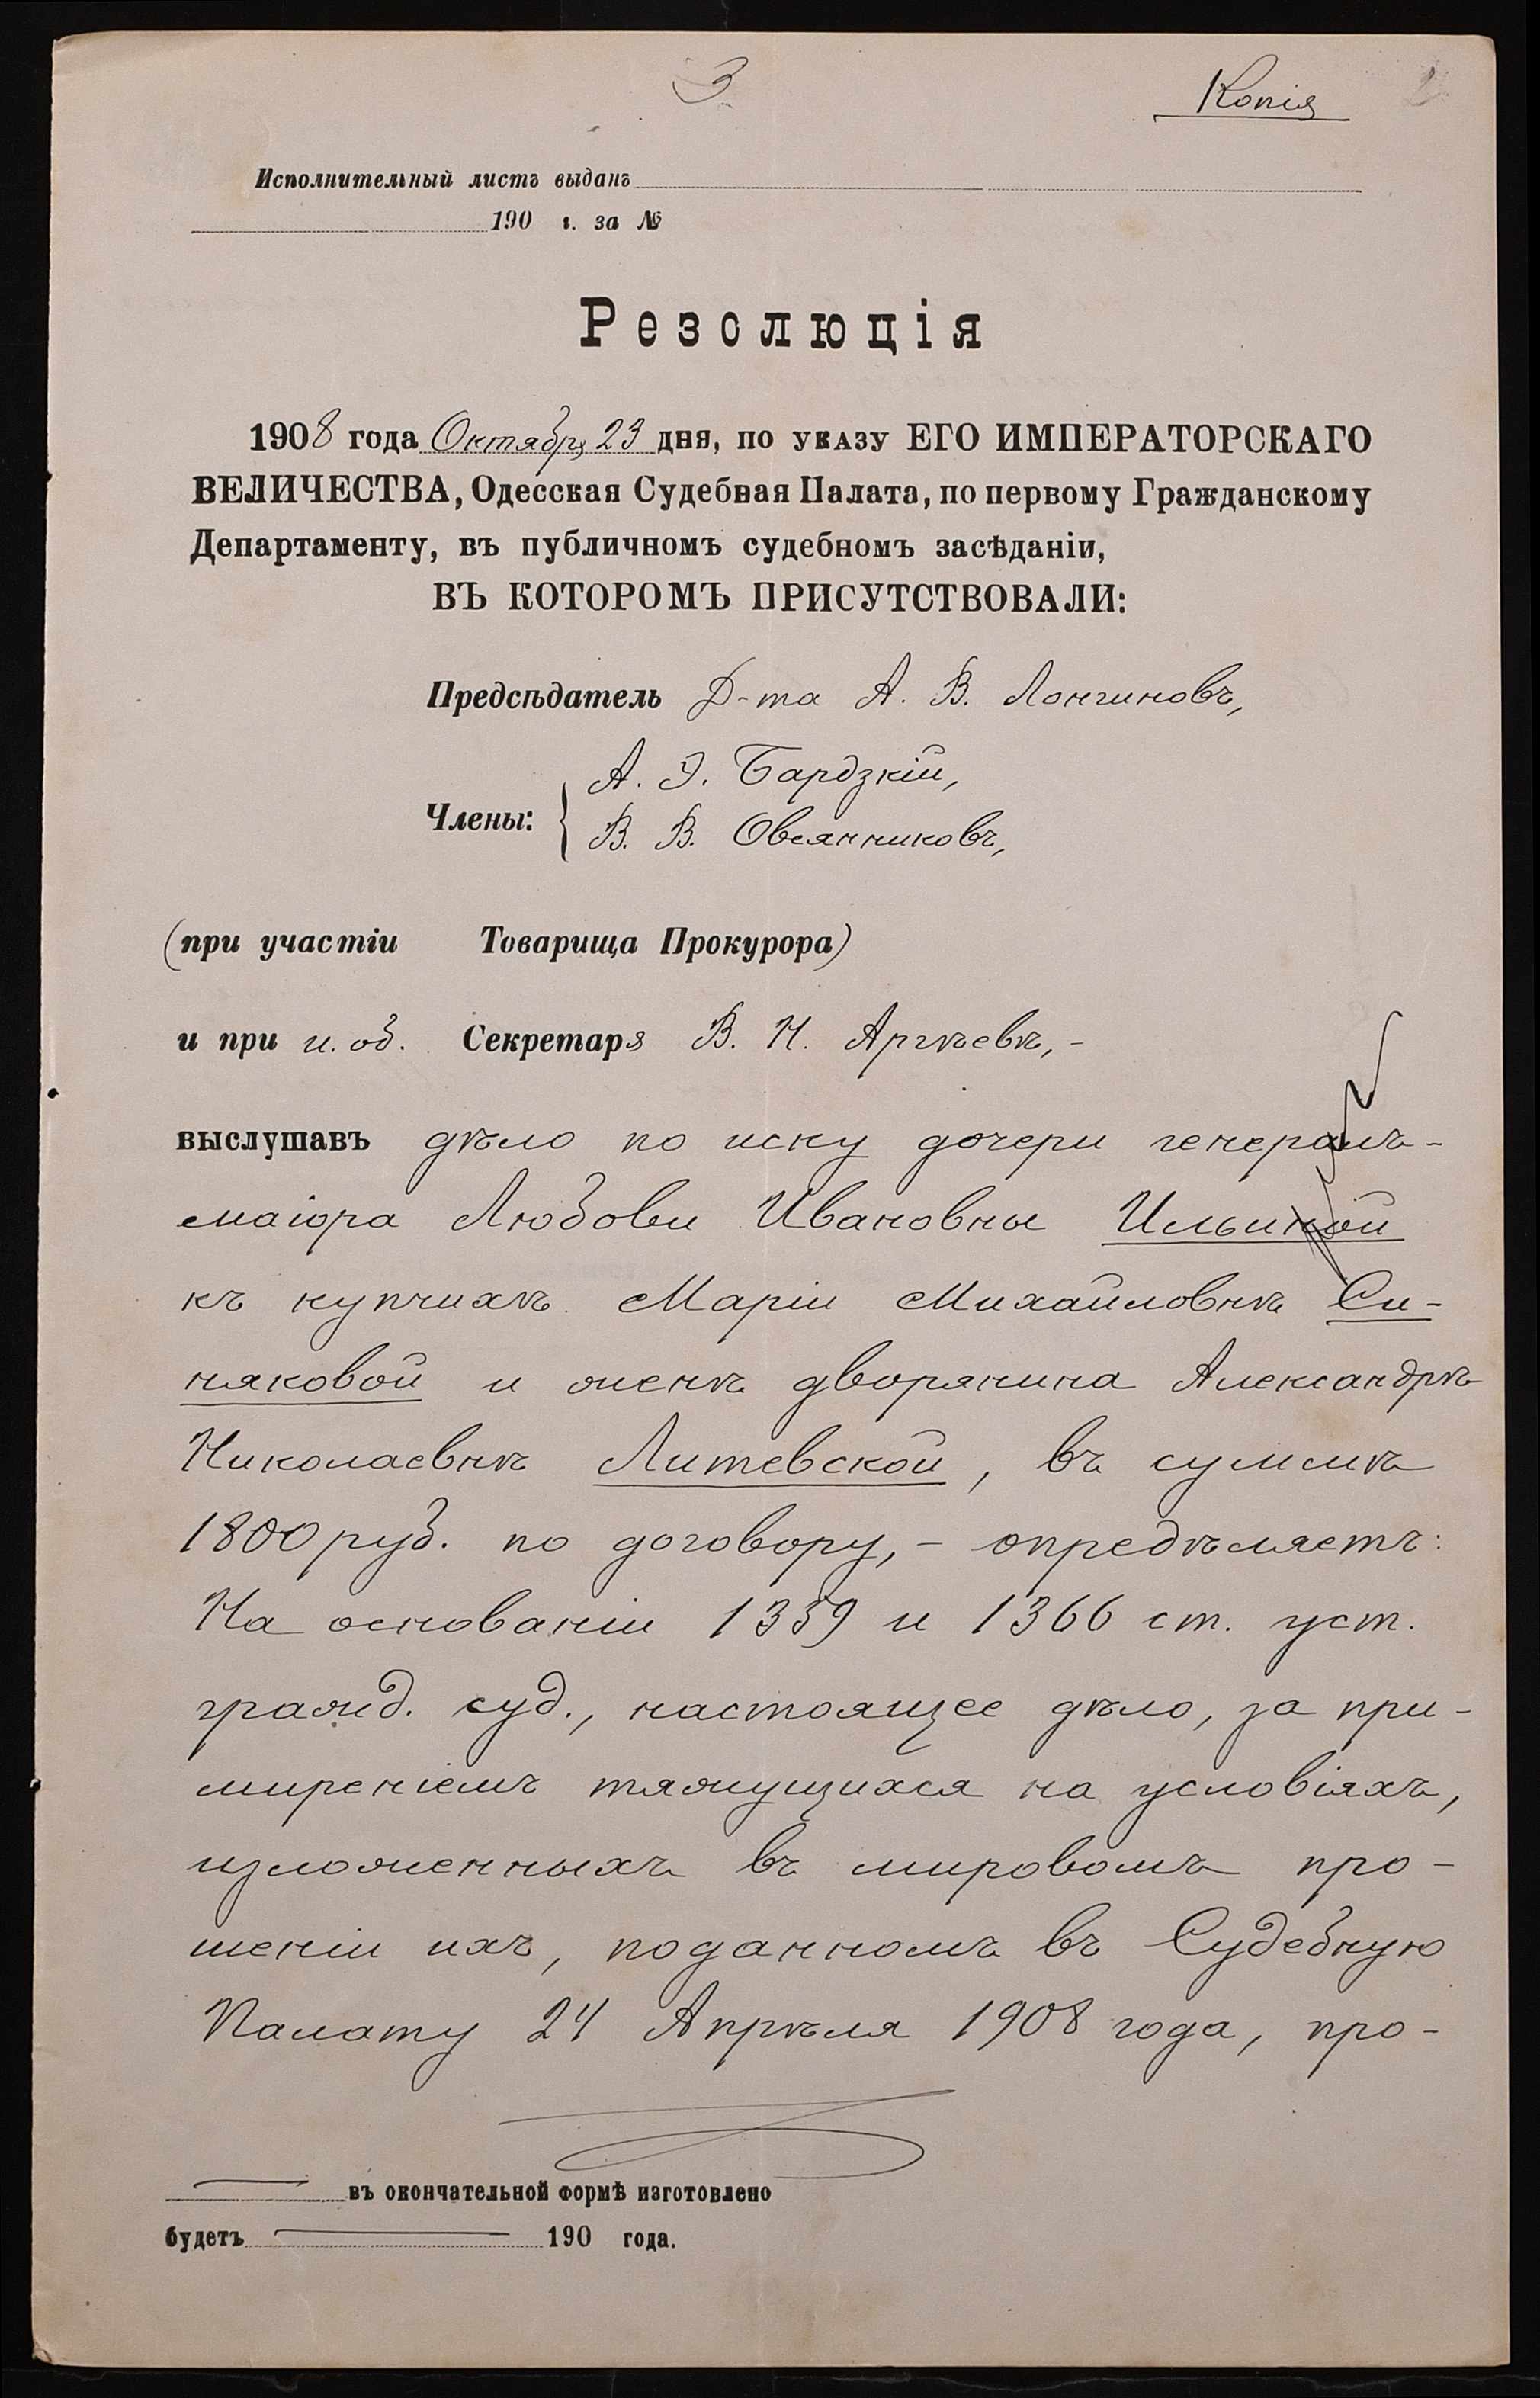 3
Копія
Исполнительный листъ выданъ
190 г. за №
Резолюція
1908 года Октября 23 дня, по указу ЕГО ИМПЕРАТОРСКАГО
ВЕЛИЧЕСТВА, Одесская Судебная Палата, по первому Гражданскому
Департаменту, въ публичномъ судебномъ засѣданіи,
ВЪ КОТОРОМЪ ПРИСУТСТВОВАЛИ:
Предсѣдатель Д-та А. В. Лонгиновъ,
А. Э. Бардзкій,
Члены:
В. В. Овсянниковъ,
(при участіи Товарища Прокурора)
и при и. об. Секретаря В. Н. Аргѣевѣ,-
выслушавъ дѣло по иску дочери генералъ-
маіора Любови Ивановны Ильиной
къ купчихѣ Маріи Михайловнѣ Си-
няковой и женѣ дворянина Александрѣ
Николаевнѣ Литевской, въ суммѣ
1800 руб. по договору,- опредѣляетъ:
На основаніи 1359 и 1366 ст. уст.
гражд. суд., настоящее дѣло, за при-
миреніемъ тяжущихся на условіяхъ,
изложенныхъ въ мировомъ про-
шеніи ихъ, поданномъ въ Судебную
Палату 24 Апрѣля 1908 года, про-
въ окончательной формѣ изготовлено
будетъ 190 года.